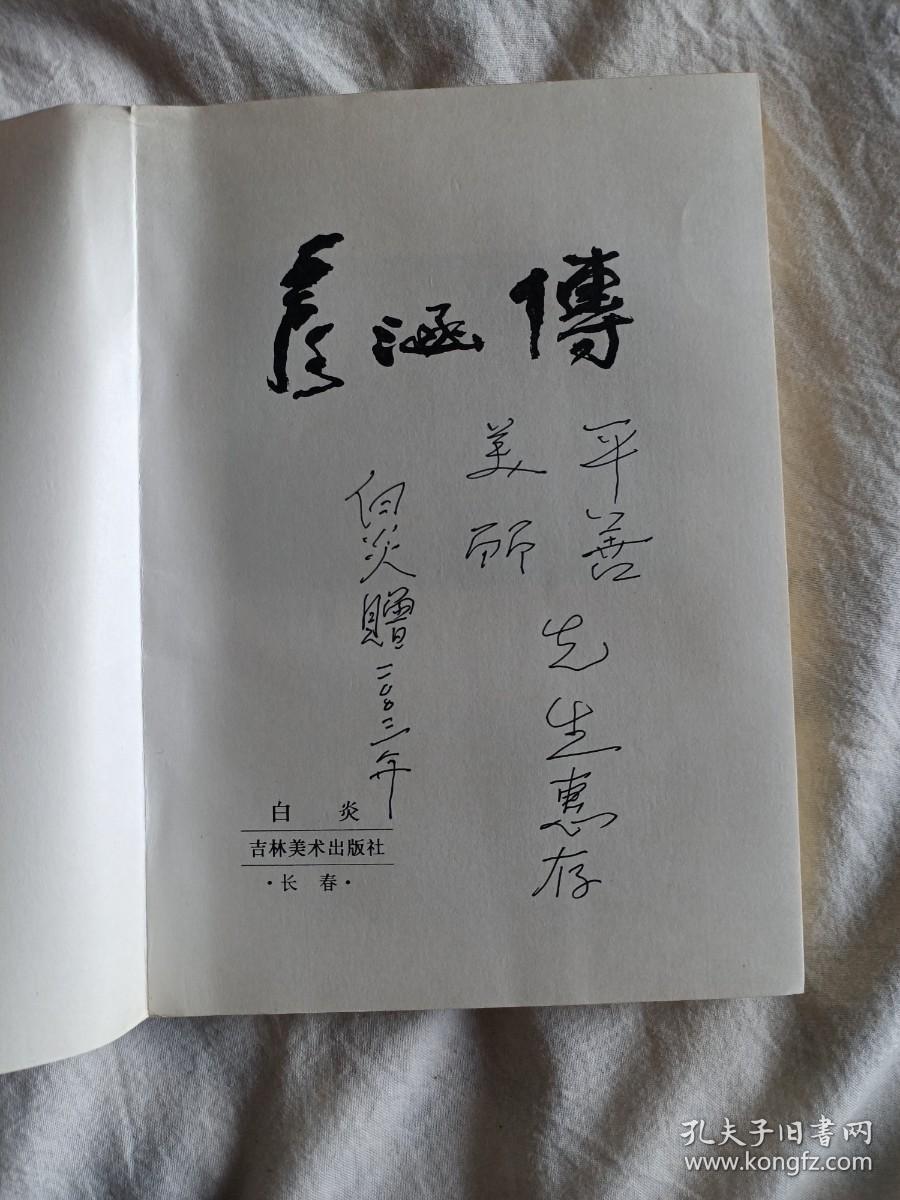 彦涵傳
平善
美
先生惠存
白炎贈
白 炎
吉林美术出版社
·长 春·
孔夫子旧书网
www.kongfz.com